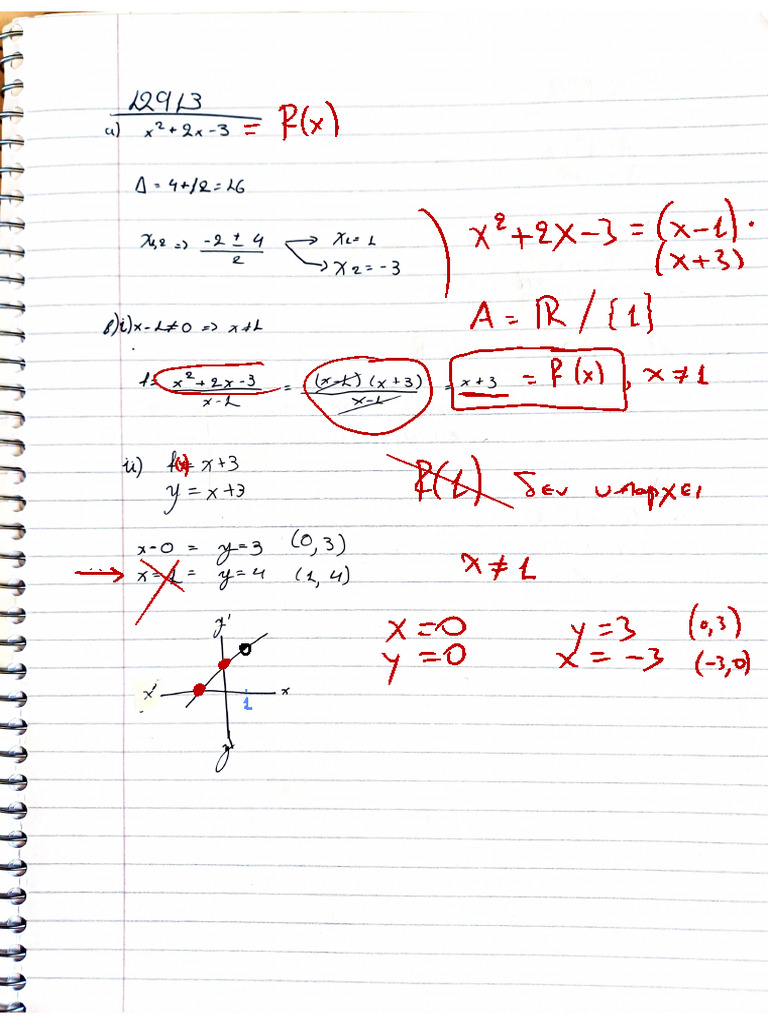 12913
α) x² + 2x - 3 = f(x)
Δ = 4 + 12 = 16
x₁,₂ => (-2 ± 4)/2 → x₁ = 1
→ x₂ = -3
x² + 2x - 3 = (x - 1) ·
(x + 3)
A = ℝ / {1}
β) i) x - 1 ≠ 0 => x ≠ 1
f = (x² + 2x - 3)/(x - 1) = ((x - 1)(x + 3))/(x - 1) = x + 3 = f(x), x ≠ 1
ii) f(x) = x + 3
y = x + 3
f(1) δεν υπαρχει
x - 0 = y = 3 (0, 3)
x = 1 = y = 4 (1, 4)
x ≠ 1
x = 0 y = 3 (0, 3)
y = 0 x = -3 (-3, 0)
y'
x' x
1
y